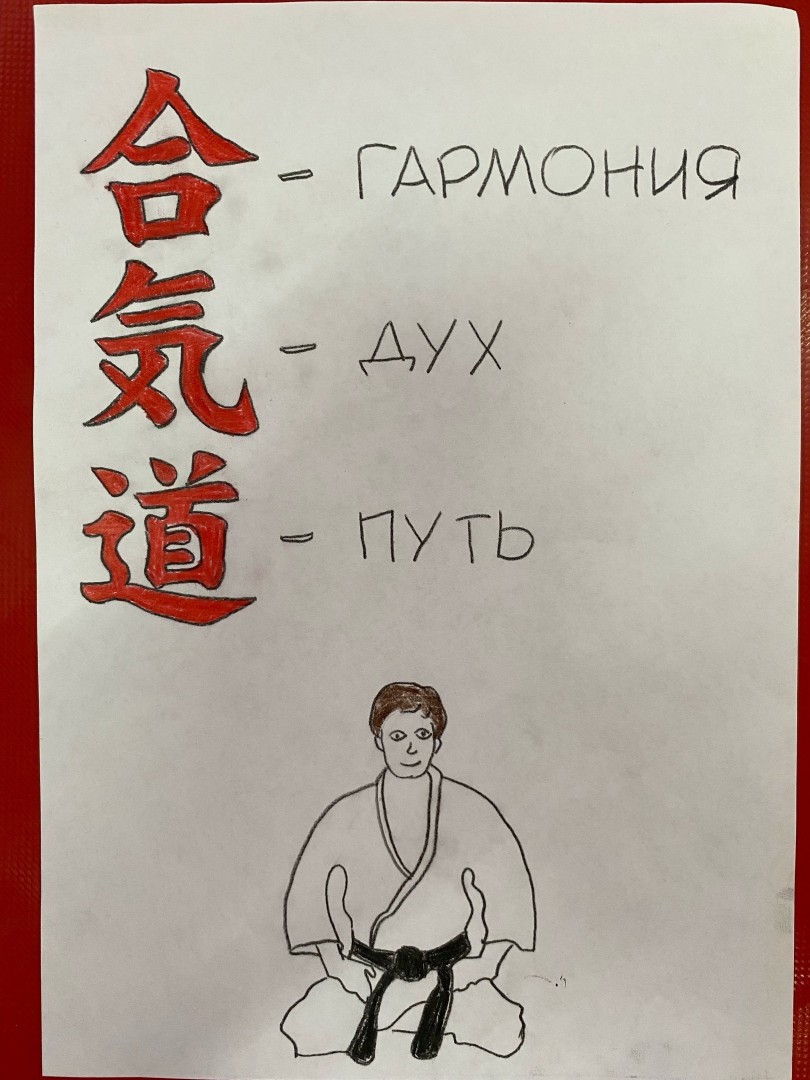 合 - ГАРМОНИЯ
気 - ДУХ
道 - ПУТЬ